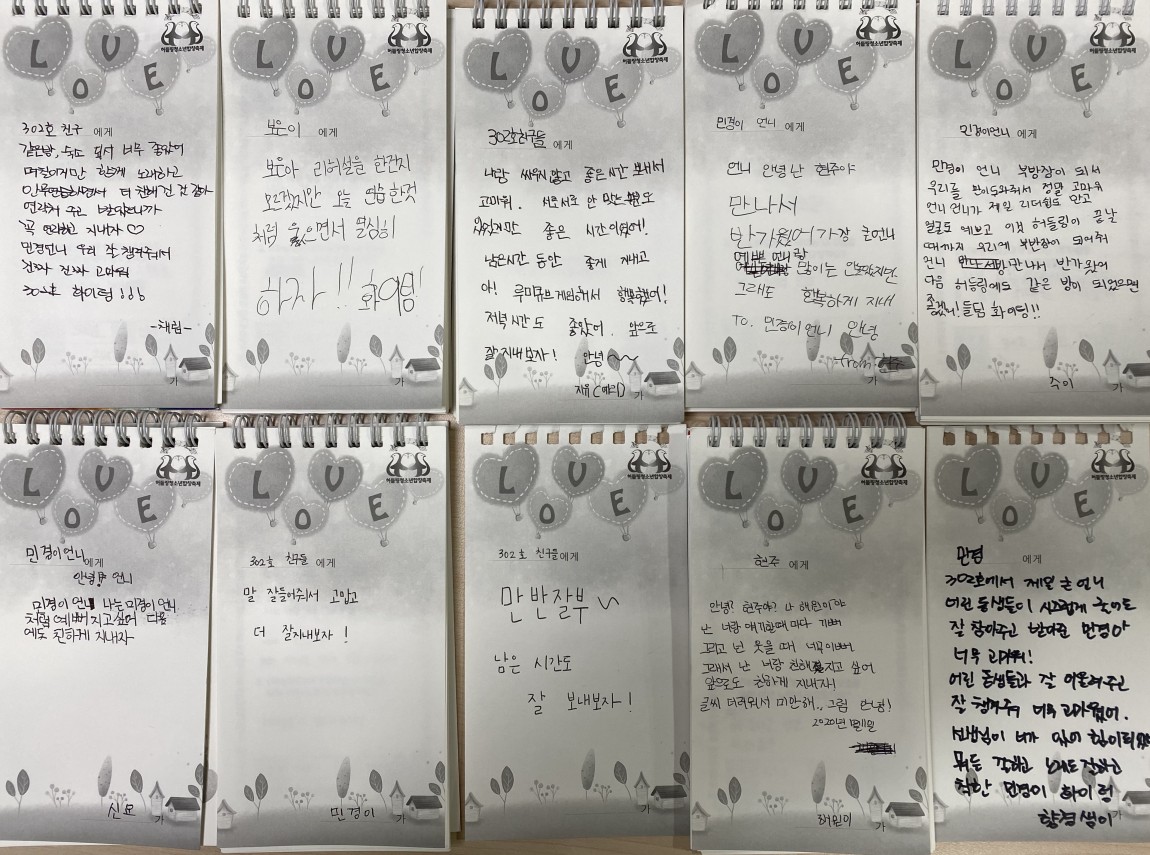 LOVE
허들링청소년합창축제
302호 친구 에게
같은방, 숙소 돼서 너무 좋았어
며칠이지만 함께 노래하고
더 친해진 것 같아
연락처 주고 받았으니까
꼭 연락하고 지내자 ♡
민경언니 우리 잘 챙겨주셔서
진짜 진짜 고마워
302호 화이팅!!!
-채림-
가
LOVE
허들링청소년합창축제
보윤이 에게
보윤아 리허설을 한전지
모르겠지만 오늘 연습한것
처럼 웃으면서 열심히
하자!! 화이팅!
LOVE
허들링청소년합창축제
302호친구들 에게
나랑 싸우지않고 좋은시간 보내서
고마워. 서로서로 안 맞는
있었지만 좋은 시간이었어!
남은시간 동안 좋게 지내고
아! 루미큐브게임해서 행복했어!
저녁시간도 좋았어. 앞으로
잘지내보자! 안녕~~
지유(예리)
가
LOVE
허들링청소년합창축제
민경이 언니 에게
언니 안녕 난 현주야
만나서
반가웠어 가장 큰언니
예쁜 언니랑
말이는 안했지만
그래도 행복하게 지내
To. 민경이언니 안녕
from 현주
가
LOVE
허들링청소년합창축제
민경이언니 에게
민경이 언니 부방장이 되서
우리를 많이도와줘서 정말 고마워
언니 언니가 제일 리더쉽도 있고
얼굴도 예쁘고 이것 허들링이 끝날
때까지 우리에 부방장이 되어줘
언니 만나서 반가웠어
다음 허들링에도 같은 방이 되었으면
좋겠어! 들딤 화이팅!!
주이
가
LOVE
허들링청소년합창축제
민경이언니에게
안녕 언니
민경이 언니 나는 민경이 언니
처럼 예뻐지고싶어 다음
에도 친하게 지내자
신모
가
LOVE
허들링청소년합창축제
302호 친구들 에게
말 잘들어줘서 고맙고
더 잘지내보자!
민경이
가
LOVE
허들링청소년합창축제
302호 친구들에게
만반잘부~
남은 시간도
잘 보내보자!
가
LOVE
허들링청소년합창축제
현주 에게
안녕? 현주야? 나 해원이야
난 너랑 얘기할때마다 기뻐
그리고 넌 웃을때 너무이뻐
그래서 난 너랑 친해지고 싶어
앞으로도 친하게 지내자!
글씨 더러워서 미안해.. 그럼 안녕!
2020년 1월11일
해원이
가
LOVE
허들링청소년합창축제
민경 에게
302호에서 제일 큰 언니
어린 동생들이 시끄럽게 굴어도
잘 참아주고 받아준 민경아
너무 고마워!
어린 동생들과 잘 어울려주고
잘 챙겨줘 너무 고마웠어.
선생님이 너가 있어 힘이되었어
뭐든 잘하고 노래도 잘하고
착한 민경이 화이팅
향경쌤이